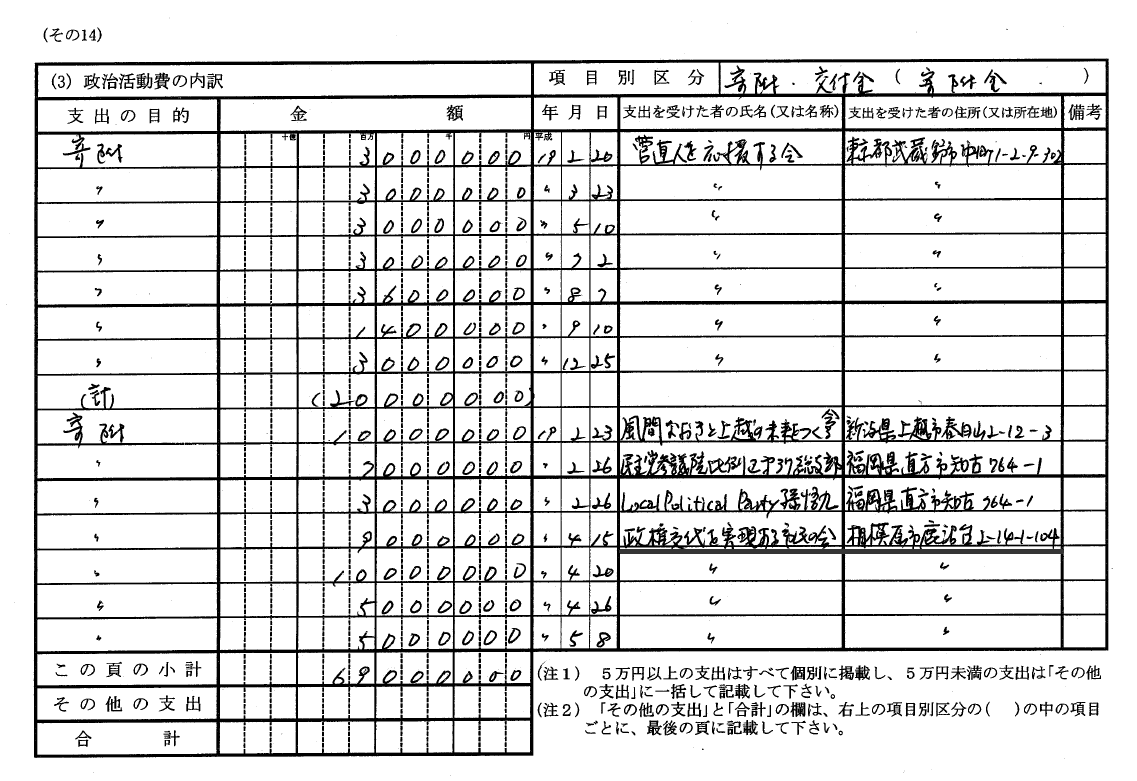 (その14)
(3) 政治活動費の内訳 項目別区分 寄附・交付金 ( 寄附金 )
支出の目的 金額 年月日 支出を受けた者の氏名(又は名称) 支出を受けた者の住所(又は所在地) 備考
十億 百万 千 円 平成
寄附 3000000 19 2 20 菅直人を応援する会 東京都武蔵野市中町1-2-9-302
〃 3000000 〃 3 23 〃 〃
〃 3000000 〃 5 10 〃 〃
〃 3000000 〃 7 2 〃 〃
〃 3600000 〃 8 7 〃 〃
〃 1400000 〃 9 10 〃 〃
〃 3000000 〃 12 25 〃 〃
(計) (20000000)
寄附 10000000 19 2 23 風間なおきと上越の未来をつくる会 新潟県上越市春日山2-12-3
〃 7000000 〃 2 26 民主党参議院比例区第37総支部 福岡県直方市知古764-1
〃 3000000 〃 2 26 Local Political Party 福岡県直方市知古764-1
〃 9000000 〃 4 15 政権交代を実現する市民の会 相模原市鹿沼台2-14-1-104
〃 10000000 〃 4 20 〃 〃
〃 5000000 〃 4 26 〃 〃
〃 5000000 〃 5 8 〃 〃
この頁の小計 69000000
その他の支出
合計
(注1) 5万円以上の支出はすべて個別に掲載し、5万円未満の支出は「その他
の支出」に一括して記載して下さい。
(注2) 「その他の支出」と「合計」の欄は、右上の項目別区分の( )の中の項目
ごとに、最後の頁に記載して下さい。